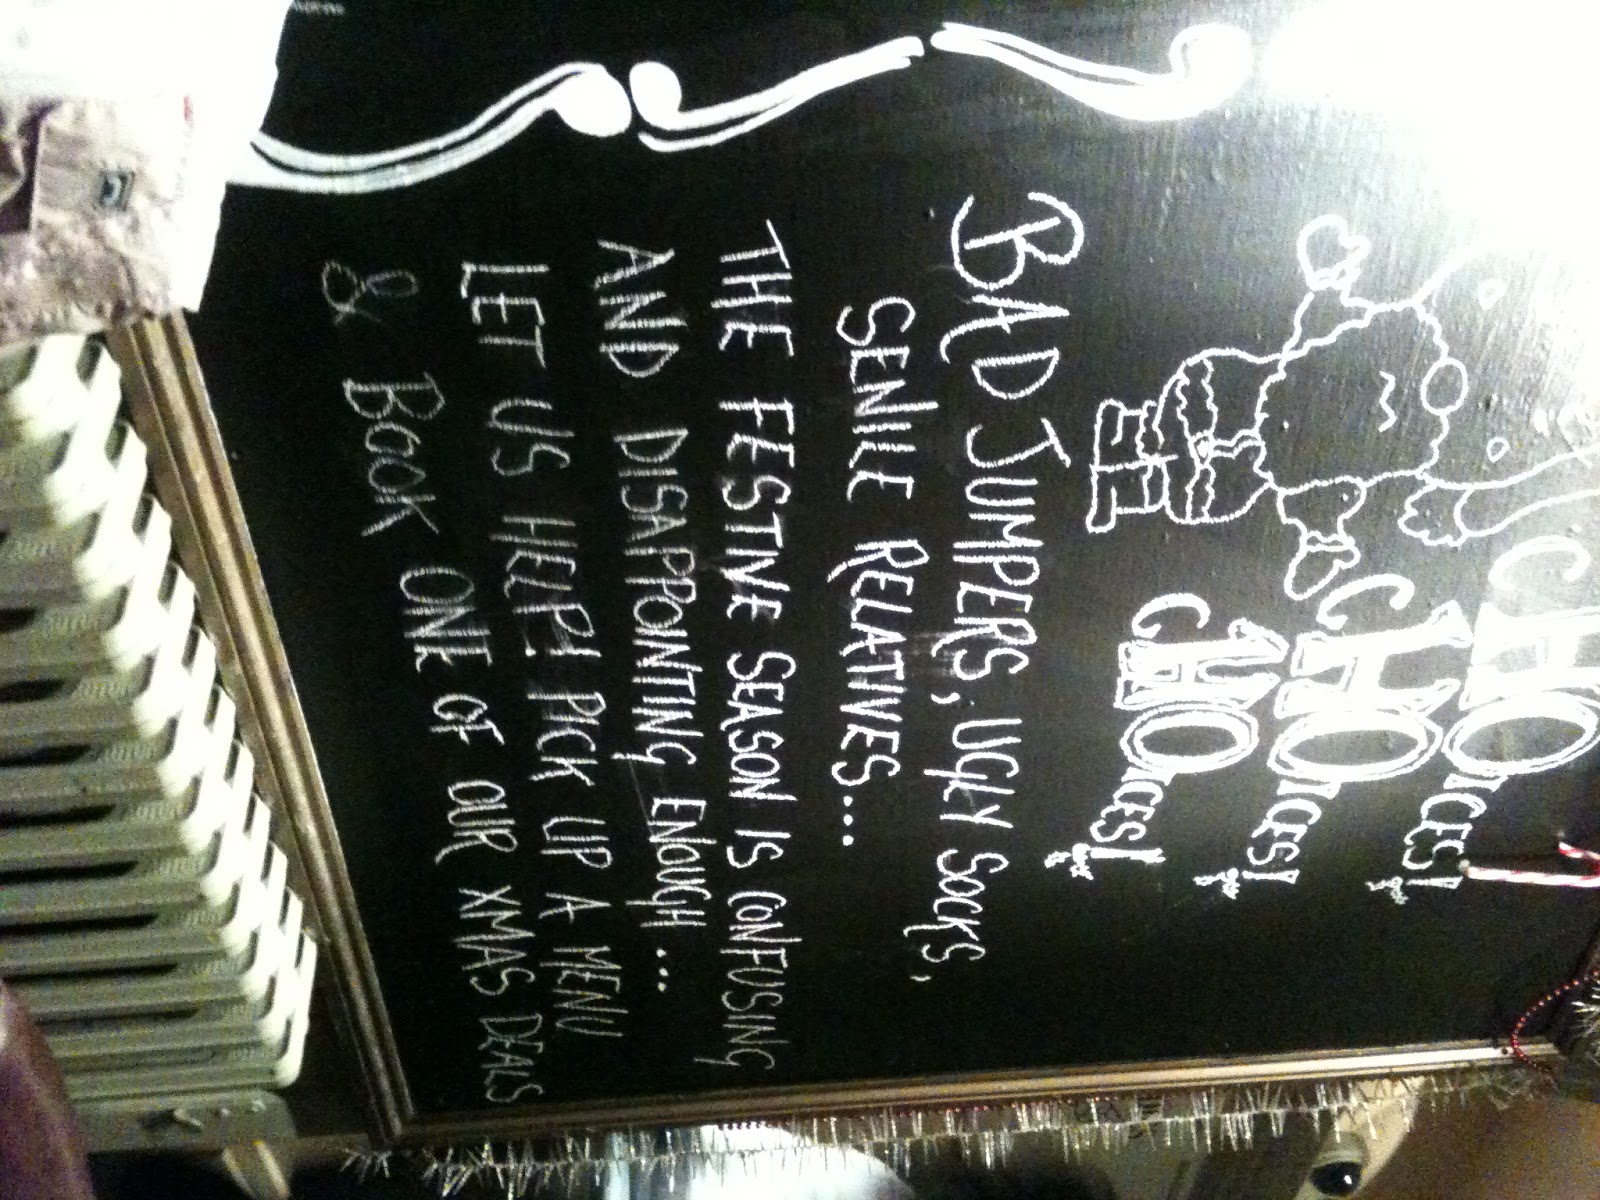 CHOICES!
CHOICES!
CHOICES!
BAD JUMPERS, UGLY SOCKS,
SENILE RELATIVES...
THE FESTIVE SEASON IS CONFUSING
AND DISAPPOINTING ENOUGH...
LET US HELP! PICK UP A MENU
& BOOK ONE OF OUR XMAS DEALS